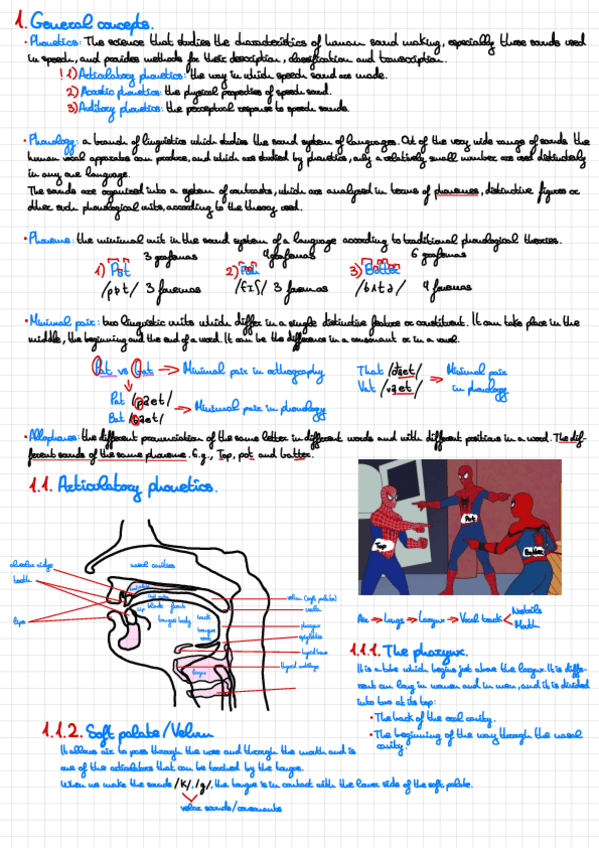 1. General concepts.
· Phonetics: The science that studies the characteristics of human sound making, especially those sounds used
in speech, and provides methods for their description, classification and transcription.
! 1) Articulatory phonetics: the way in which speech sound are made.
2) Acoustic phonetics: the physical properties of speech sound.
3) Auditory phonetics: the perceptual response to speech sounds.
· Phonology: a branch of linguistics which studies the sound system of languages. Out of the very wide range of sounds the
human vocal apparatus can produce, and which are studied by phonetics, only a relatively small number are used distinctively
in any one language.
The sounds are organized into a system of contrasts, which are analysed in terms of phonemes, distinctive figures or
other such phonological units, according to the theory used.
· Phoneme: the minimal unit in the sound system of a language according to traditional phonological theories.
3 grafemas 4 grafemas 6 grafemas
1) Pot 2) 3) Better
/ppt/ 3 fonemas /fɪʃ/ 3 fonemas /bʌtə/ 4 fonemas
· Minimal pair: two linguistic units which differ in a single distinctive feature or constituent. It can take place in the
middle, the beginning and the end of a word. It can be the difference in a consonant or in a vowel.
Pat vs bat → Minimal pair in orthography
That /ðaet/
Vat /vaet/ → Minimal pair
in phonology
Pat /paet/
Bat /baet/ → Minimal pair in phonology
· Allophones: the different pronunciation of the same letter in different words and with different positions in a word. The dif-
ferent sounds of the same phoneme. E.g., Top, pot and butter.
1.1. Articulatory phonetics.
Top
Pot
Butter
alveolar ridge
teeth
lips
nasal cavities
tip blade front
back
tongue body
tongue
root
velum (soft palate)
uvula
pharynx
epiglottis
hyoid bone
thyroid cartilage
larynx
Air → Lungs → Larynx → Vocal track < Nostrils
Mouth
1.1.1. The pharynx.
It is a tube which begins just above the larynx. It is diffe-
rent on long in women and in men, and it is divided
into two at its top:
· The back of the oral cavity.
· The beginning of the way through the nasal
cavity.
1.1.2. Soft palate/Velum
It allows air to pass through the nose and through the mouth and is
one of the articulators that can be touched by the tongue.
When we make the sounds /k/, /g/, the tongue is in contact with the lower side of the soft palate.
velar sounds/consonants